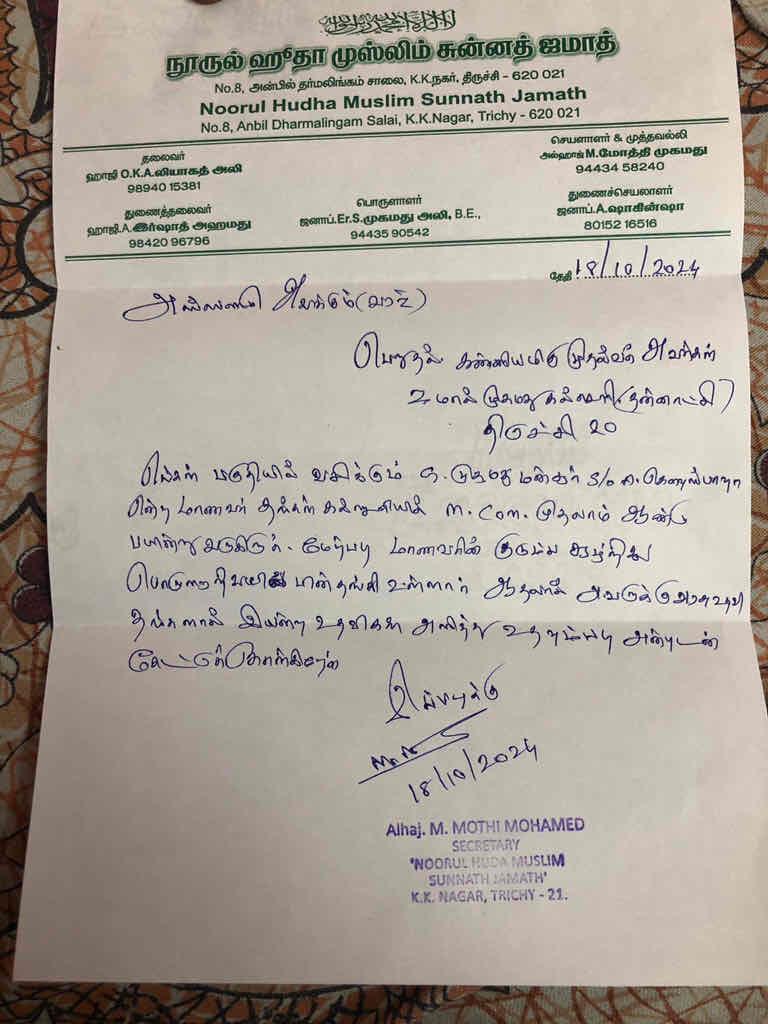 நூருல் ஹூதா முஸ்லிம் சுன்னத் ஜமாத்
No.8, அன்பில் தர்மலிங்கம் சாலை, K.K.நகர், திருச்சி - 620 021
Noorul Hudha Muslim Sunnath Jamath
No.8, Anbil Dharmalingam Salai, K.K.Nagar, Trichy - 620 021
தலைவர்
ஹாஜி O.K.A.லியாகத் அலி
98940 15381
செயலாளர் & முத்தவல்லி
அல்ஹாஜ் M.மோத்தி முகமது
94434 58240
துணைத்தலைவர்
ஹாஜி.A.இர்ஷாத் அஹமது
98420 96796
பொருளாளர்
ஜனாப்.Er.S.முகமது அலி, B.E.,
94435 90542
துணைச்செயலாளர்
ஜனாப்.A.ஷாகின்ஷா
80152 16516
தேதி 18/10/2024
அஸ்ஸலாமு அலைக்கும் (வரஹ்)
பெறுதல் கண்ணியமிகு முதல்வர் அவர்கள்
ஜமால் முகமது கல்லூரி (தன்னாட்சி)
திருச்சி 20
எங்கள் பகுதியில் வசிக்கும் முகமது S/o
என்ற மாணவர் தங்கள் கல்லூரியில் M.Com. முதலாம் ஆண்டு
பயின்று வருகிறார். மேற்படி மாணவரின் குடும்ப சூழ்நிலை
பின்தங்கி உள்ளார் ஆதலால் அவருக்கு
தங்களால் இயன்ற உதவிகளை அளித்து உதவும்படி அன்புடன்
கேட்டுக் கொள்கிறேன்
இப்படிக்கு
18/10/2024
Alhaj. M. MOTHI MOHAMED
SECRETARY
'NOORUL HUDA MUSLIM
SUNNATH JAMATH'
K.K. NAGAR, TRICHY - 21.